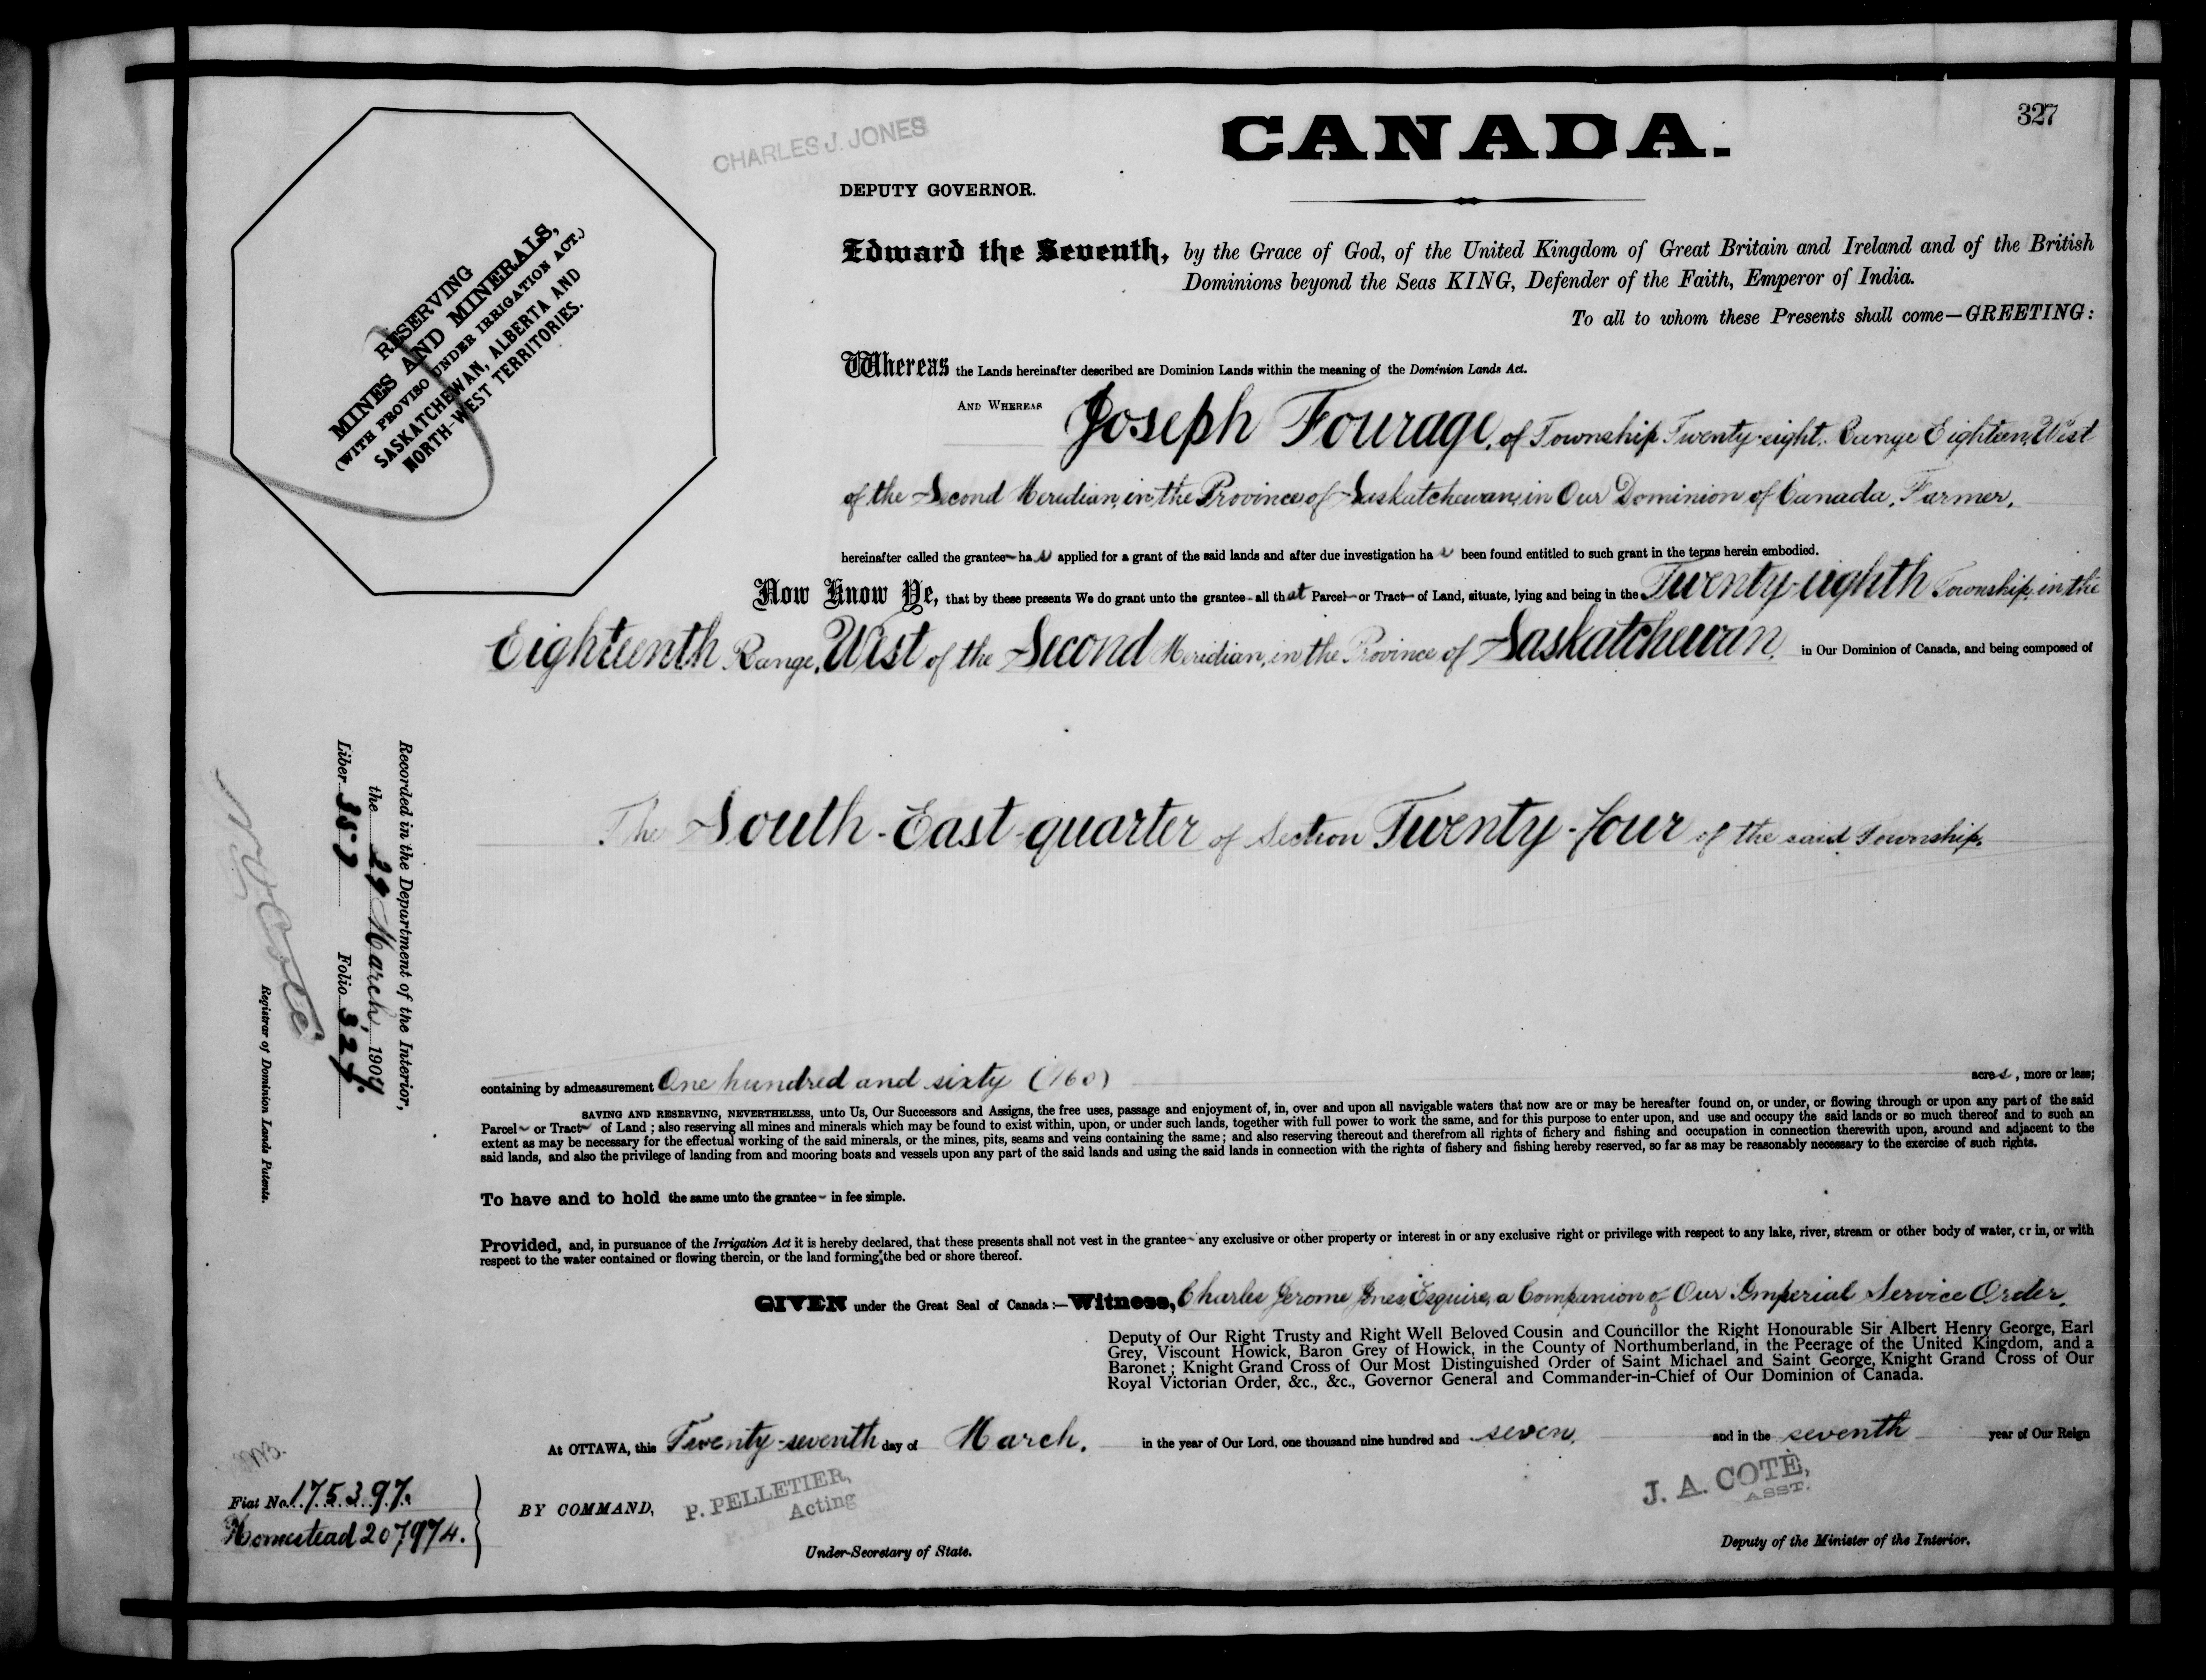 327
CANADA.
CHARLES J. JONES
DEPUTY GOVERNOR.
RESERVING
MINES AND MINERALS,
(WITH PROVISO UNDER IRRIGATION ACT.)
SASKATCHEWAN, ALBERTA AND
NORTH-WEST TERRITORIES.
Edward the Seventh, by the Grace of God, of the United Kingdom of Great Britain and Ireland and of the British
Dominions beyond the Seas KING, Defender of the Faith, Emperor of India.
To all to whom these Presents shall come—GREETING:
Whereas the Lands hereinafter described are Dominion Lands within the meaning of the Dominion Lands Act.
AND WHEREAS Joseph Fourage, of Township Twenty-eight, Range Eighteen, West
of the Second Meridian, in the Province of Saskatchewan, in Our Dominion of Canada, Farmer,
hereinafter called the grantee has applied for a grant of the said lands and after due investigation has been found entitled to such grant in the terms herein embodied.
Now Know Ye, that by these presents We do grant unto the grantee all that Parcel or Tract of Land, situate, lying and being in the Twenty-eighth Township, in the
Eighteenth Range, West of the Second Meridian, in the Province of Saskatchewan, in Our Dominion of Canada, and being composed of
The South-East-quarter of Section Twenty-four of the said Township,
containing by admeasurement One hundred and sixty (160) acres, more or less;
SAVING AND RESERVING, NEVERTHELESS, unto Us, Our Successors and Assigns, the free uses, passage and enjoyment of, in, over and upon all navigable waters that now are or may be hereafter found on, or under, or flowing through or upon any part of the said
Parcel or Tract of Land; also reserving all mines and minerals which may be found to exist within, upon, or under such lands, together with full power to work the same, and for this purpose to enter upon, and use and occupy the said lands or so much thereof and to such an
extent as may be necessary for the effectual working of the said minerals, or the mines, pits, seams and veins containing the same; and also reserving thereout and therefrom all rights of fishery and fishing and occupation in connection therewith upon, around and adjacent to the
said lands, and also the privilege of landing from and mooring boats and vessels upon any part of the said lands and using the said lands in connection with the rights of fishery and fishing hereby reserved, so far as may be reasonably necessary to the exercise of such rights.
To have and to hold the same unto the grantee in fee simple.
Provided, and, in pursuance of the Irrigation Act it is hereby declared, that these presents shall not vest in the grantee any exclusive or other property or interest in or any exclusive right or privilege with respect to any lake, river, stream or other body of water, or in, or with
respect to the water contained or flowing therein, or the land forming the bed or shore thereof.
GIVEN under the Great Seal of Canada:—Witness, Charles Jerome Jones, Esquire, a Companion of Our Imperial Service Order,
Deputy of Our Right Trusty and Right Well Beloved Cousin and Councillor the Right Honourable Sir Albert Henry George, Earl
Grey, Viscount Howick, Baron Grey of Howick, in the County of Northumberland, in the Peerage of the United Kingdom, and a
Baronet; Knight Grand Cross of Our Most Distinguished Order of Saint Michael and Saint George, Knight Grand Cross of Our
Royal Victorian Order, &c., &c., Governor General and Commander-in-Chief of Our Dominion of Canada.
At OTTAWA, this Twenty-seventh day of March, in the year of Our Lord, one thousand nine hundred and seven, and in the seventh year of Our Reign
BY COMMAND,
P. PELLETIER,
Acting
Under-Secretary of State.
J. A. COTÉ,
ASST.
Deputy of the Minister of the Interior.
Fiat No. 175397.
Homestead 207974.
Recorded in the Department of the Interior,
the 29 March, 1907.
Liber 357 Folio 327.
Registrar of Dominion Lands Patents.